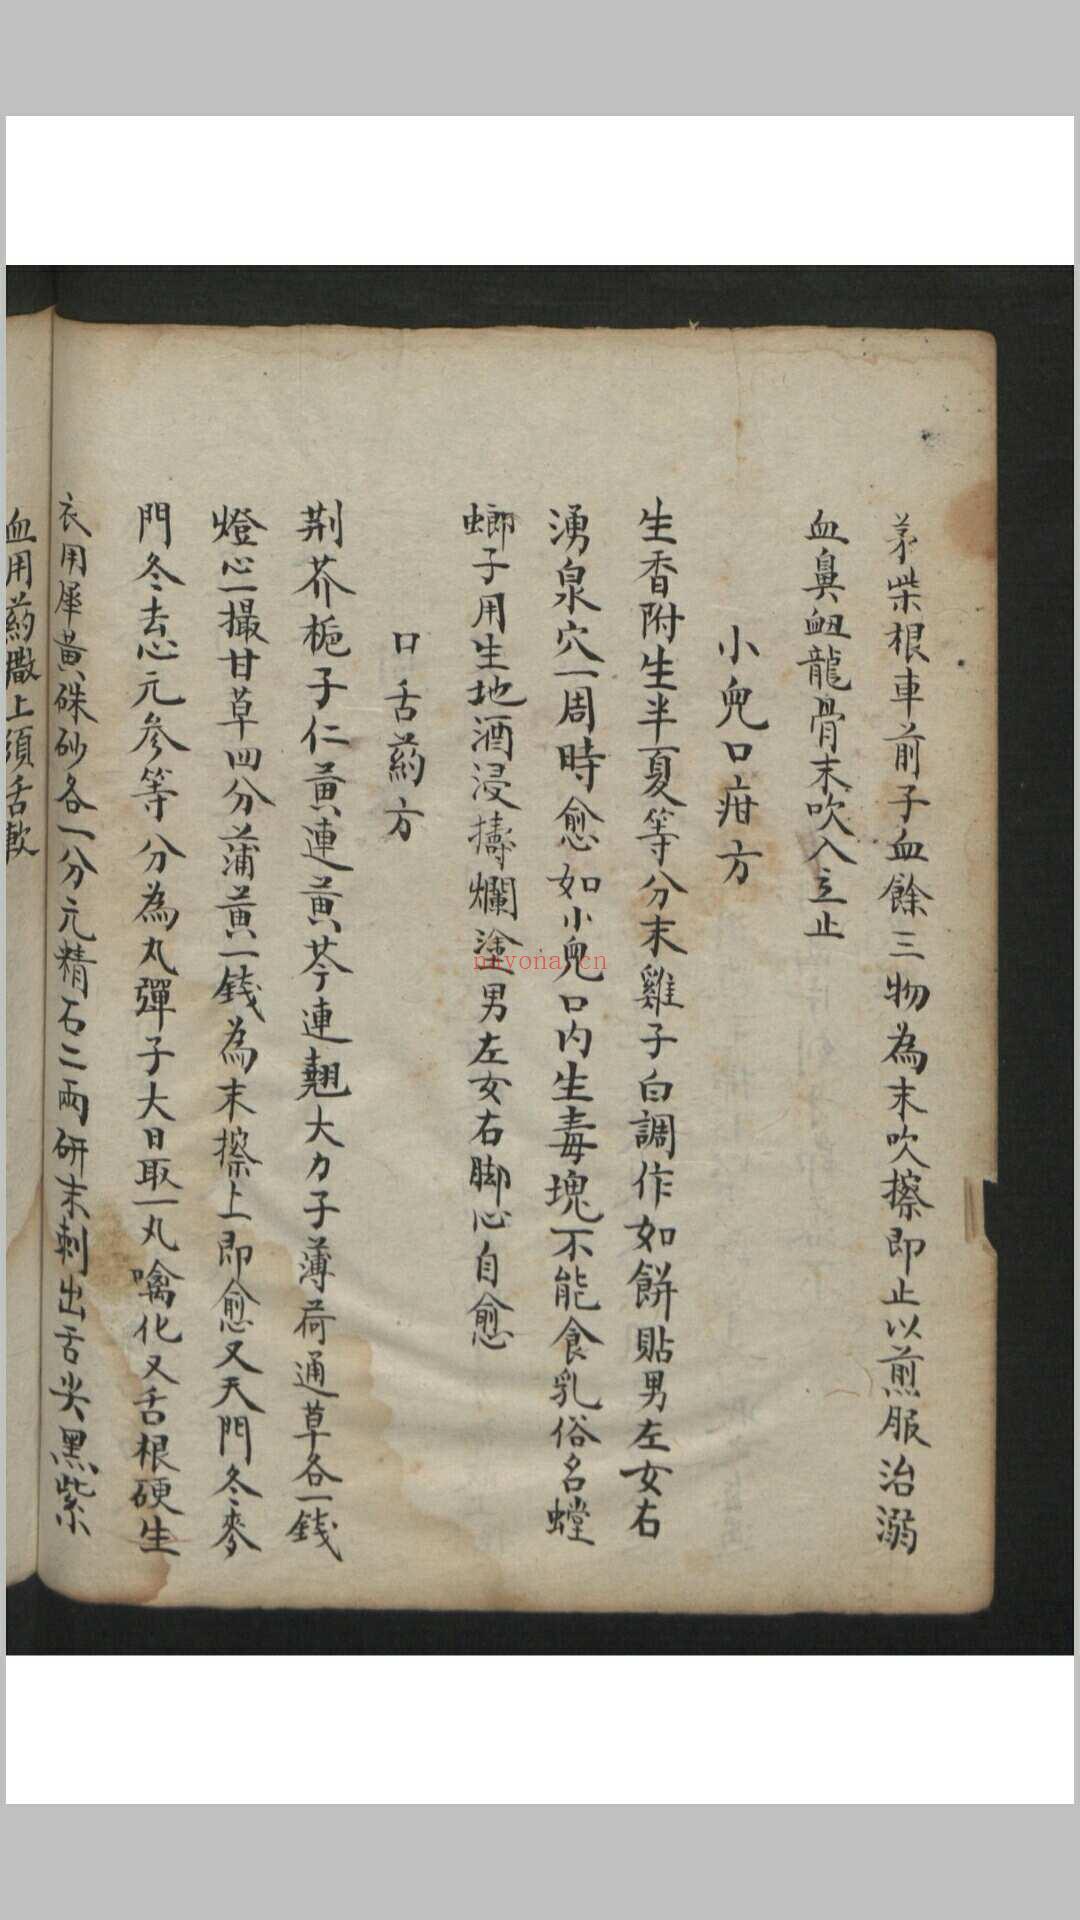 茅柴根車前子血餘三物為末吹擦即止以煎服治溺
血鼻衄龍骨末吹入立止
小兒口疳方
生香附生半夏等分末雞子白調作如餅貼男左女右
湧泉穴一周時愈如小兒口內生毒塊不能食乳俗名螳
螂子用生地酒浸擣爛塗男左女右脚心自愈
口舌葯方
荆芥梔子仁黃連黃芩連翹大力子薄荷通草各一錢
燈心一撮甘草四分蒲黃一錢為末擦上即愈又天門冬麥
門冬去心元參等分為丸彈子大日取一丸噙化又舌根硬生
衣用犀黃硃砂各一分元精石二兩研末刺出舌尖黑紫
血用葯撒上須舌軟
nayona.cn